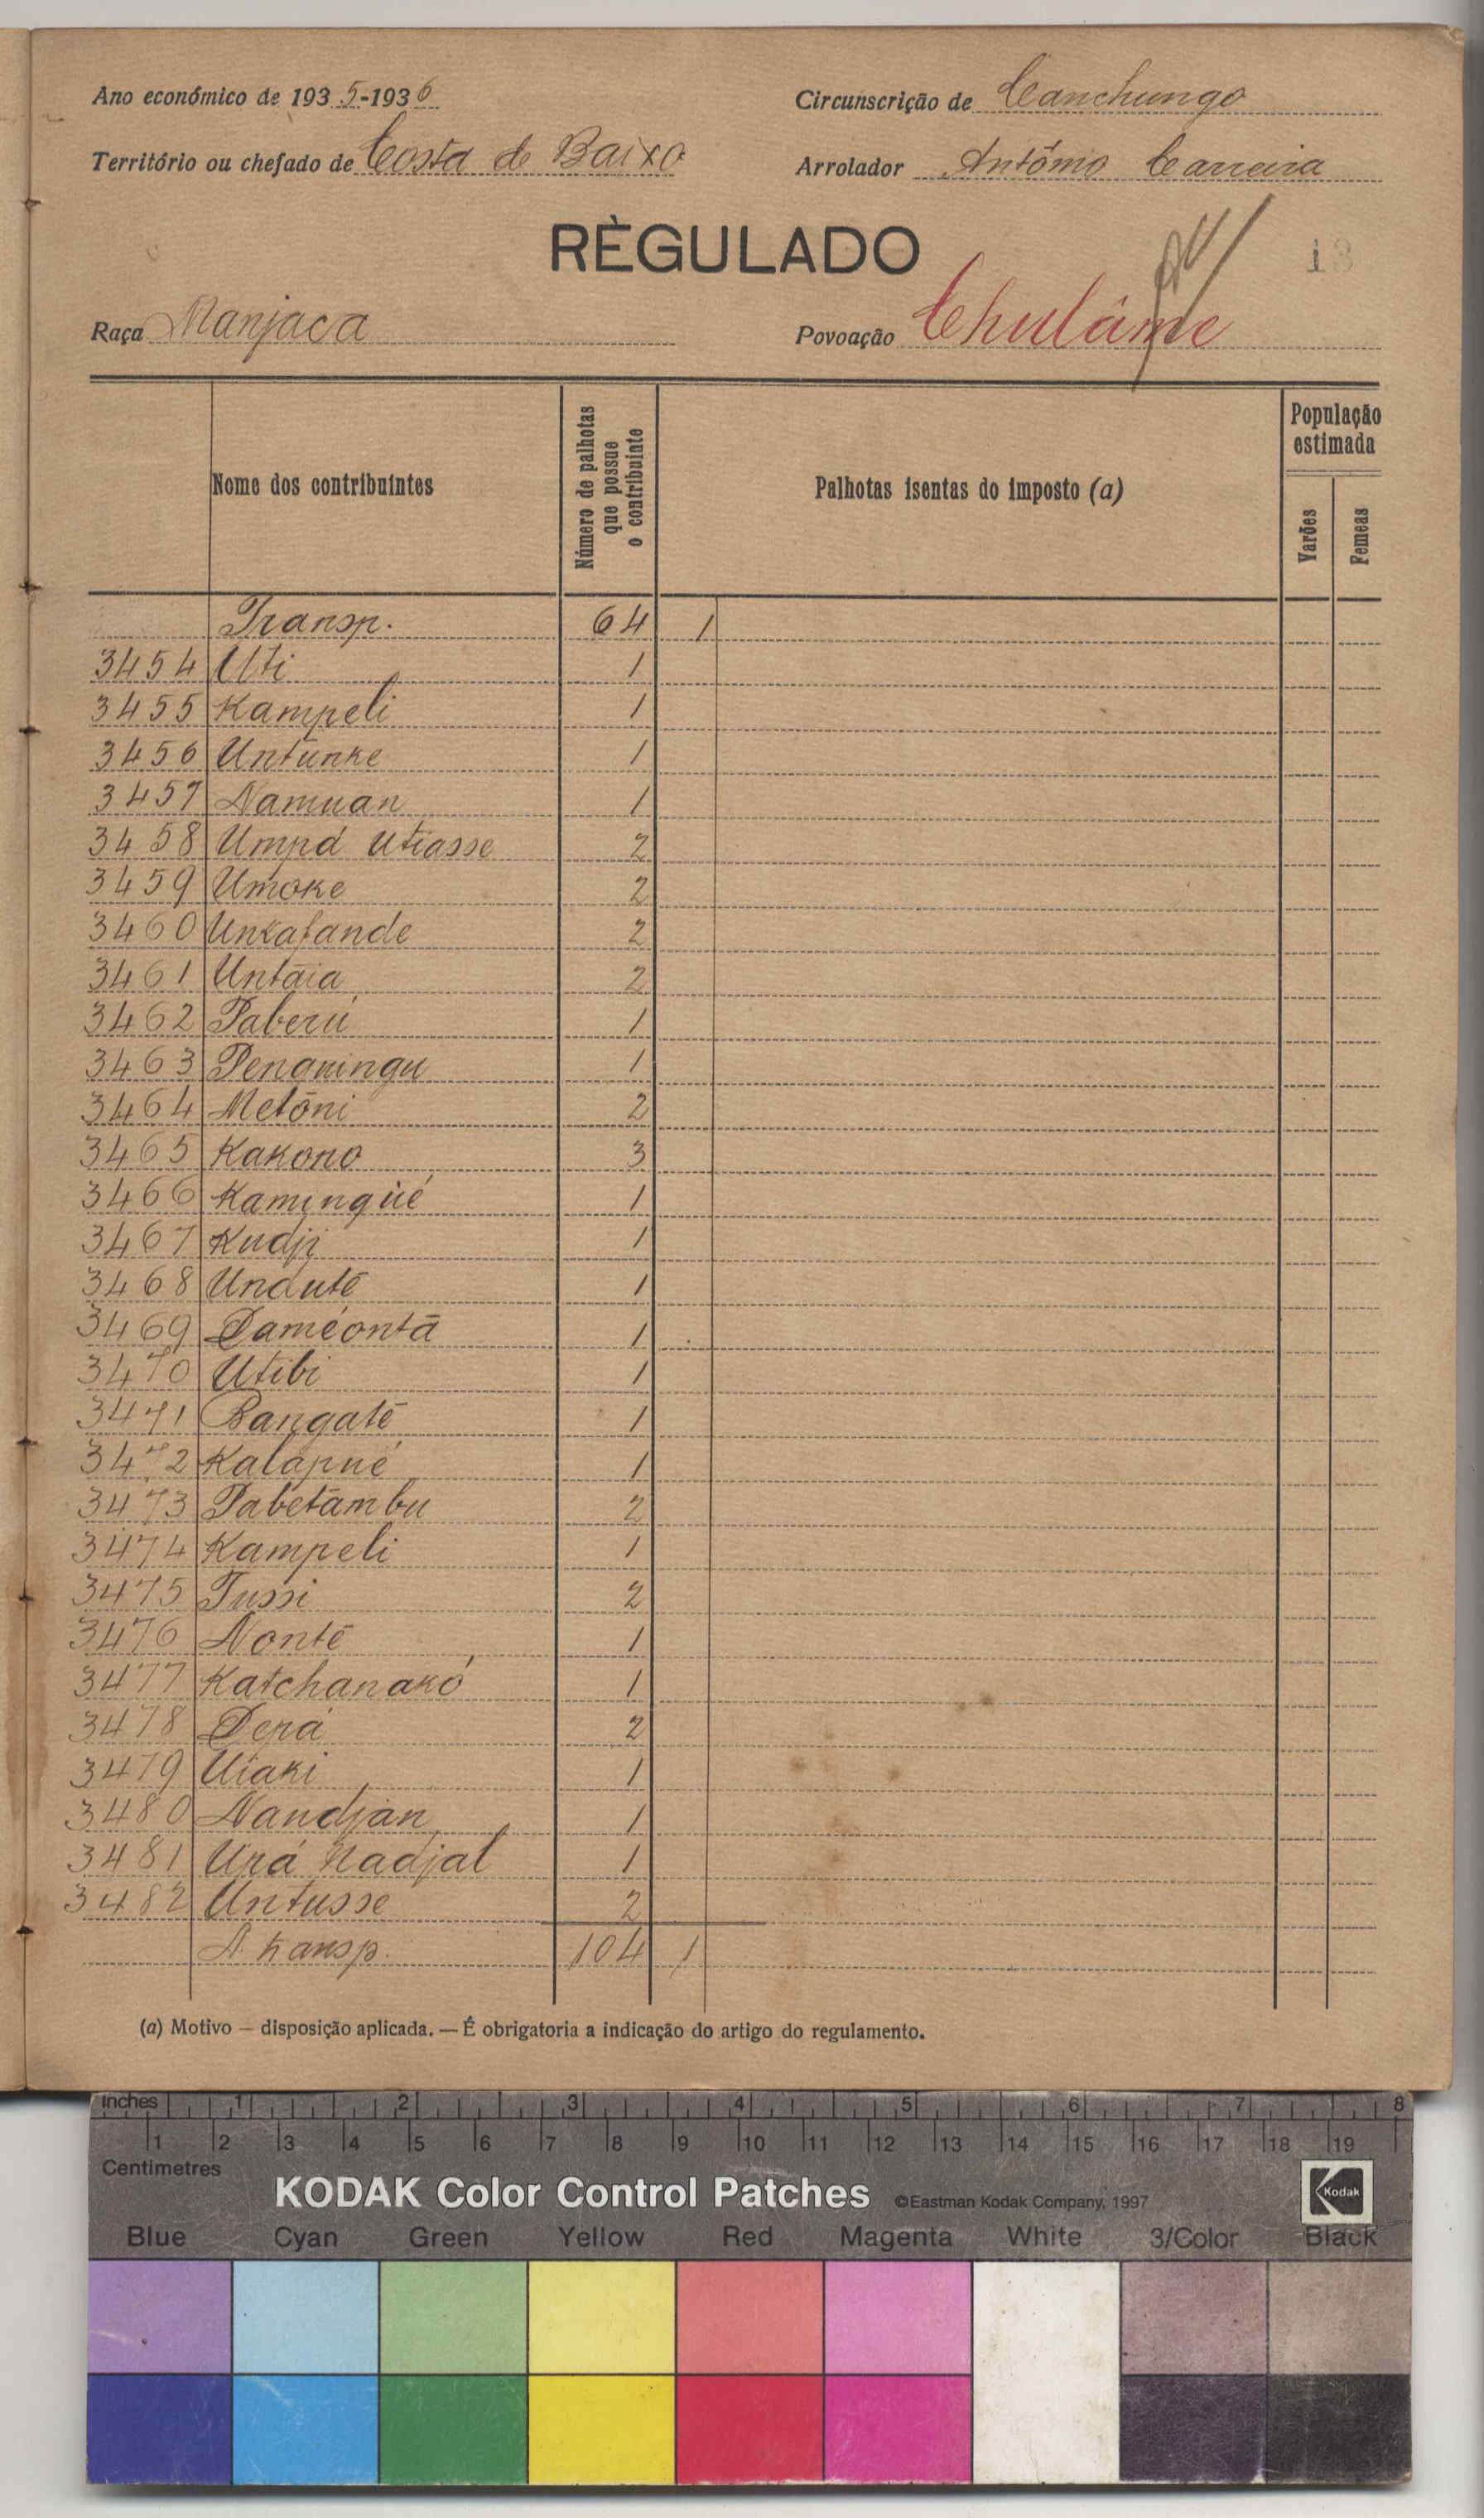 Ano económico de 1935-1936
Circunscrição de Canchungo
Território ou chefado de Costa de Baixo
Arrolador António Carreira
RÈGULADO
13
Raça Manjaca
Povoação Chulâme
Nome dos contribuintes
Número de palhotas que possue o contribuinte
Palhotas isentas do imposto (a)
População estimada
Varões
Femeas
Transp. 64 1
3454 Uti 1
3455 Kampeli 1
3456 Untunke 1
3457 Namuan 1
3458 Umpá Utiasse 2
3459 Umoke 2
3460 Unkafande 2
3461 Untáia 2
3462 Paberú 1
3463 Penquingu 1
3464 Metóni 2
3465 Kakono 3
3466 Kamingüé 1
3467 Kudji 1
3468 Undutē 1
3469 Daméontā 1
3470 Utibi 1
3471 Bangatē 1
3472 Kalapué 1
3473 Pabetāmbu 2
3474 Kampeli 1
3475 Tussi 2
3476 Nontē 1
3477 Katchanakó 1
3478 Dená 2
3479 Uiaki 1
3480 Nandjan 1
3481 Uná Nadjal 1
3482 Untusse 2
A transp. 104 1
(a) Motivo — disposição aplicada. — É obrigatoria a indicação do artigo do regulamento.
Inches 1 2 3 4 5 6 7 8
1 2 3 4 5 6 7 8 9 10 11 12 13 14 15 16 17 18 19
Centimetres
KODAK Color Control Patches ©Eastman Kodak Company, 1997 Kodak
Blue Cyan Green Yellow Red Magenta White 3/Color Black